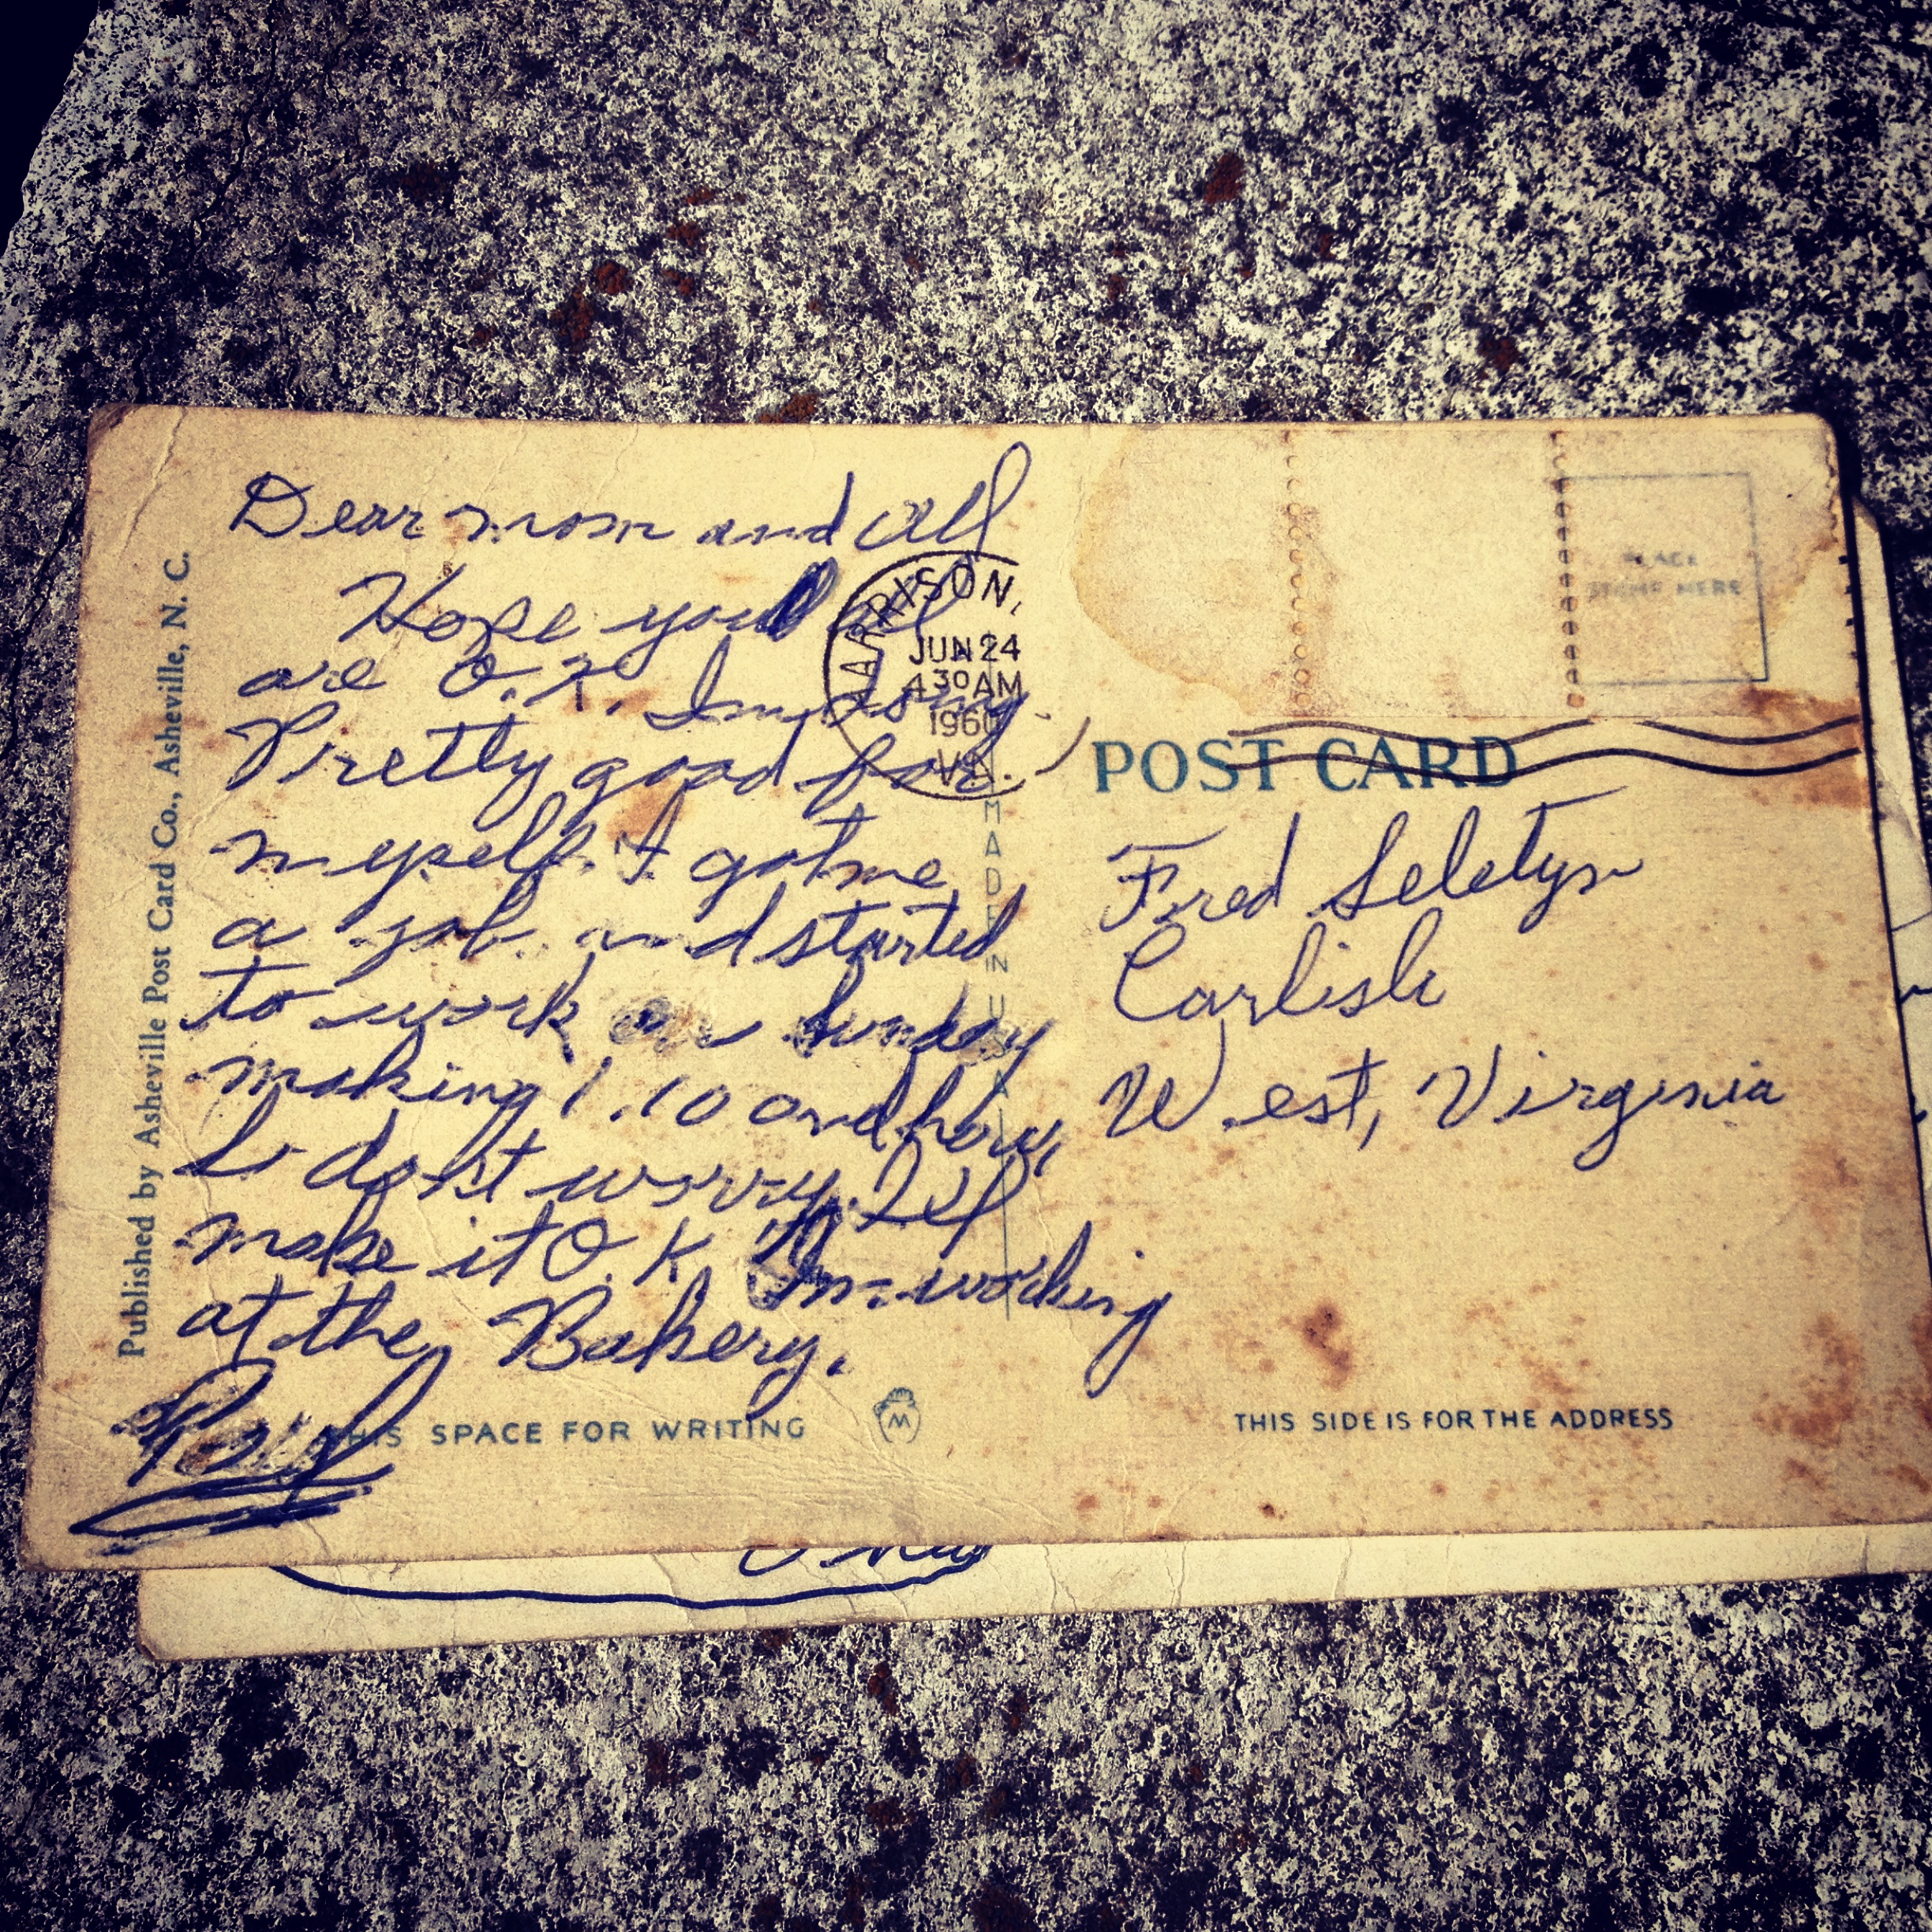 Dear mom and all
Hope you all
are O.K. Im doing
Pretty good for
myself. I got me
a job. and started
to work on Sunday
making 1.10 and hour,
So dont worry. Ill
make it O.K. Im working
at the Bakery.
Published by Asheville Post Card Co., Asheville, N. C.
THIS SPACE FOR WRITING
M
HARRISON,
JUN 24
4 30 AM
1960
VA.
MADE IN U.S.A.
PLACE
STAMP HERE
POST CARD
Fred
Carlisle
West, Virginia
THIS SIDE IS FOR THE ADDRESS